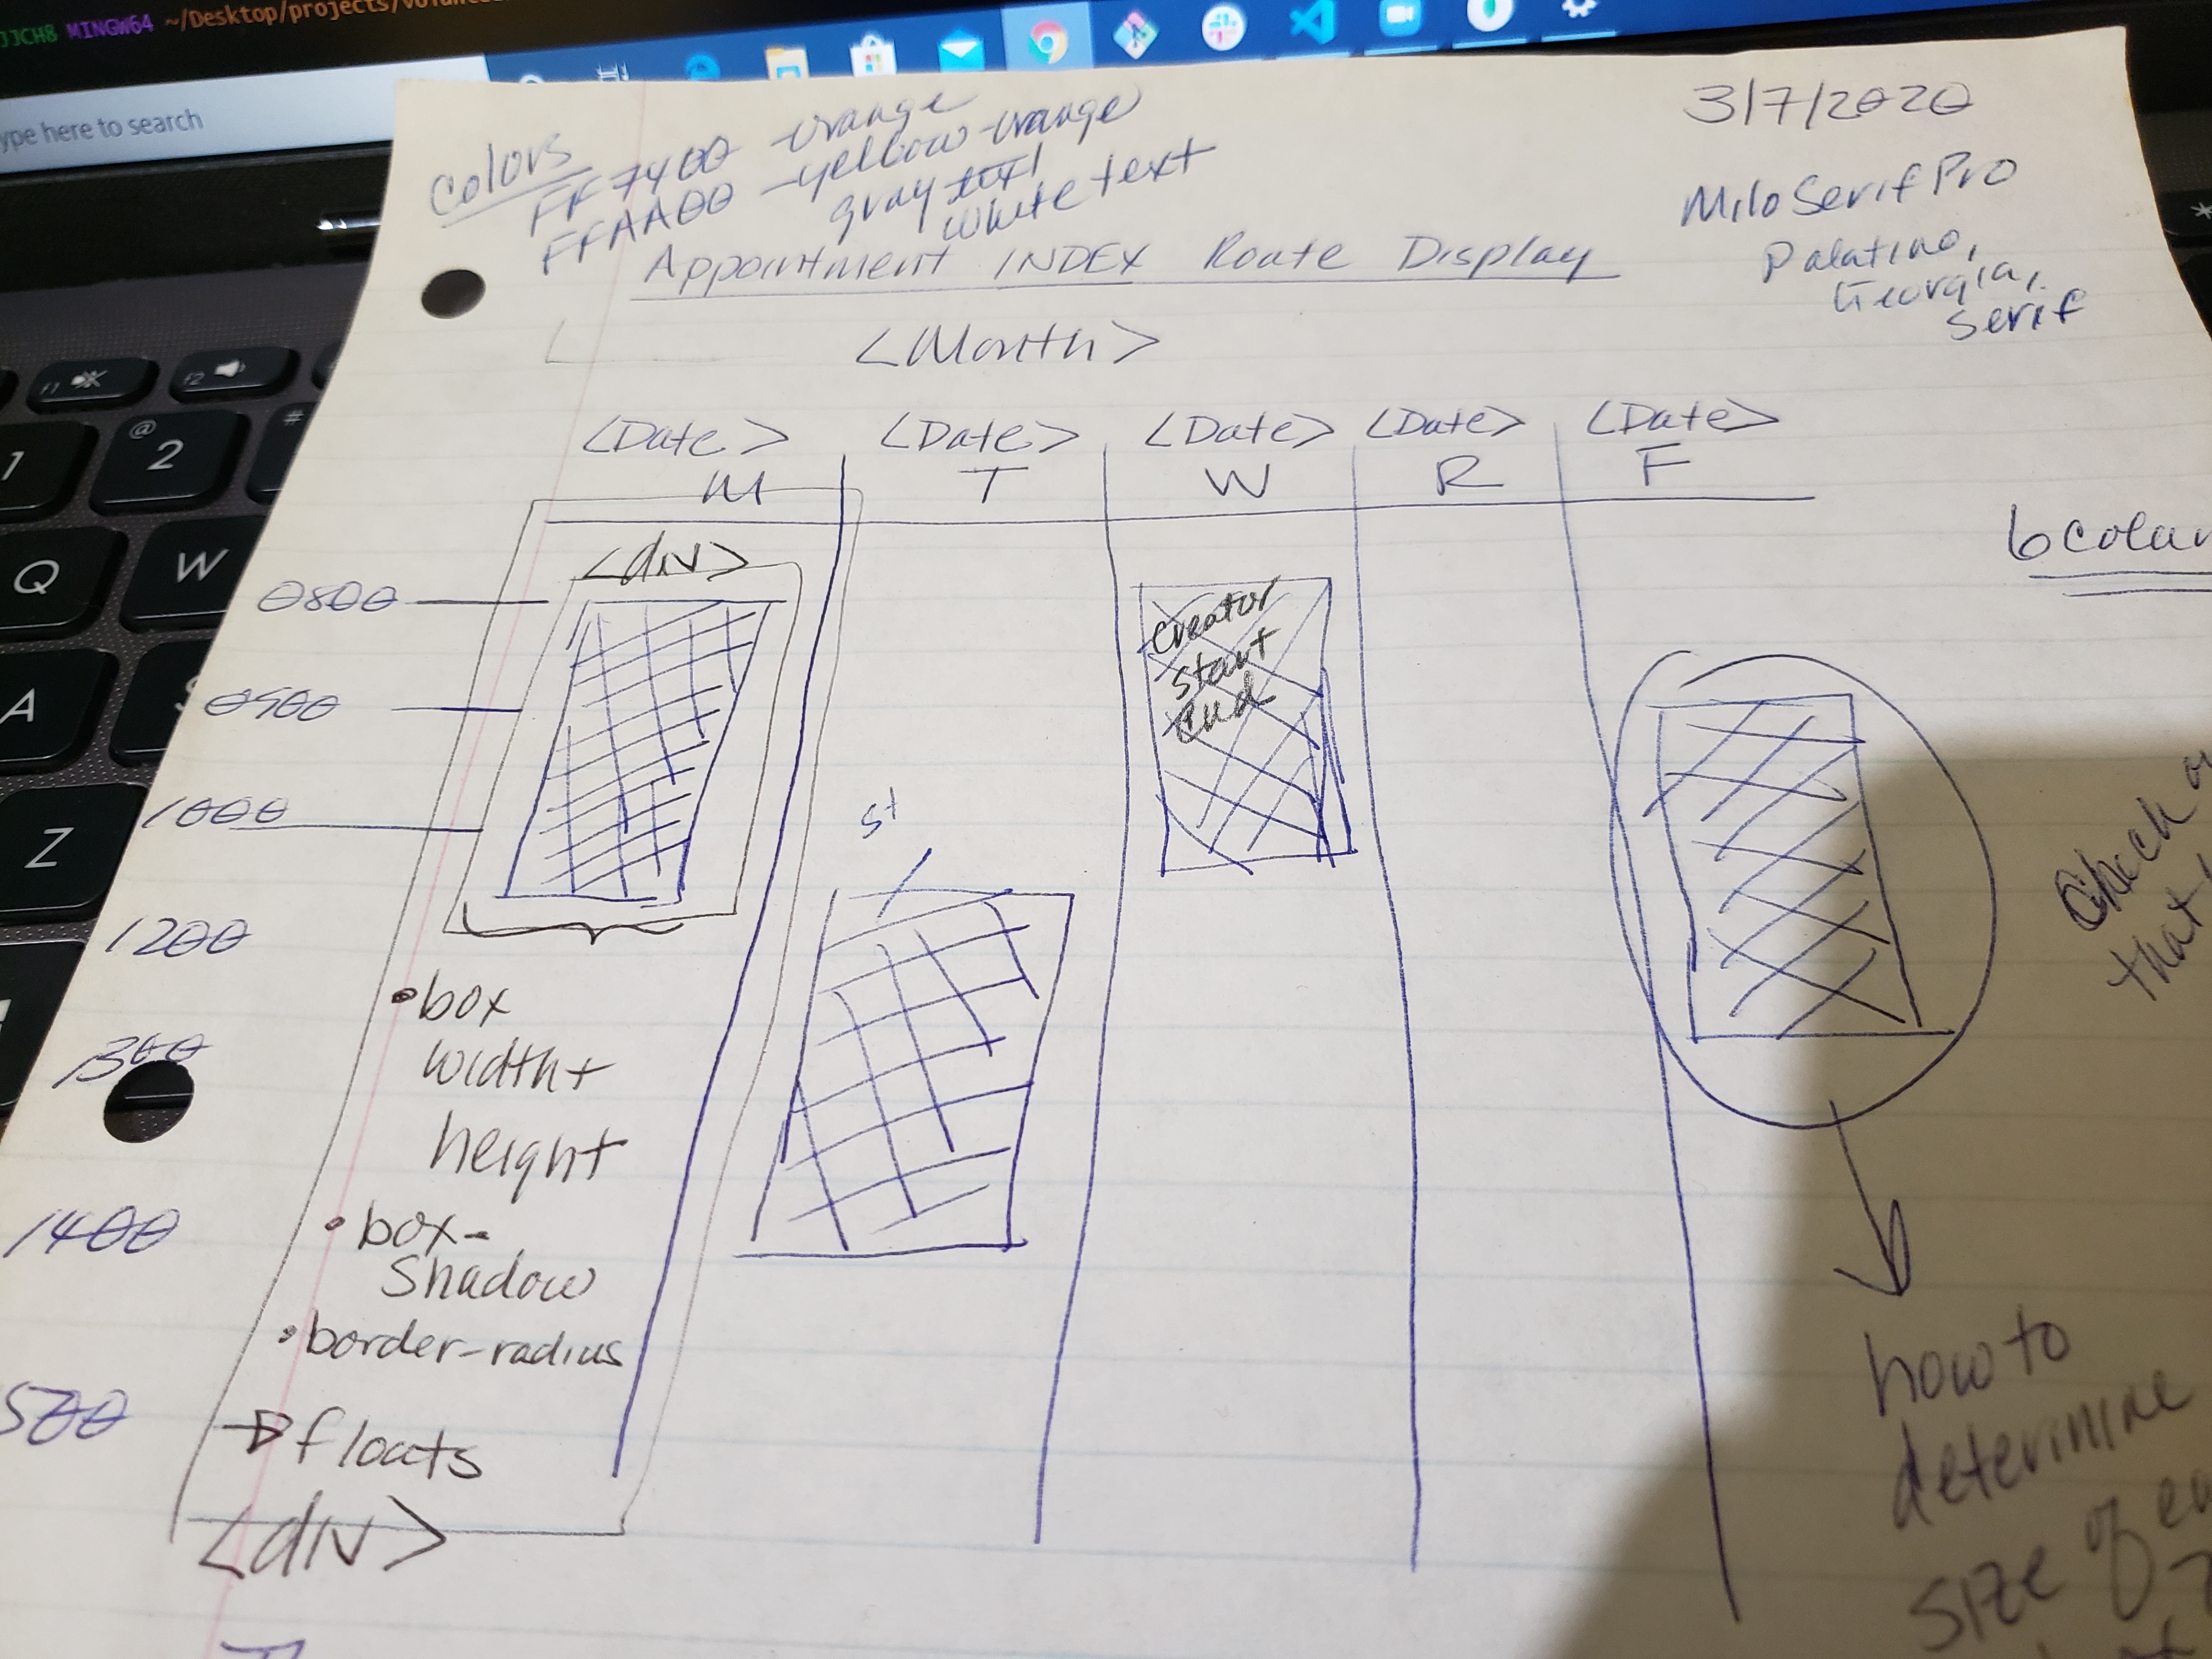 JJCH8 MINGW64 ~/Desktop/projects/
ype here to search
Colors
FF7400 - orange
FFAA00 - yellow-orange
gray text
white text
3/7/2020
Milo Serif Pro
Palatino,
Georgia,
Serif
Appointment INDEX Route Display
<Month>
<Date> <Date> <Date> <Date> <Date>
M T W R F
6 Colum
<div>
0800
0900
1000
1200
1300
1400
500
Creator
Start
End
st
• box
width +
height
• box-
shadow
• border-radius
→ floats
<div>
Check
that
how to
determine
size of
f1
f2
1
@
2
#
Q
W
A
S
Z